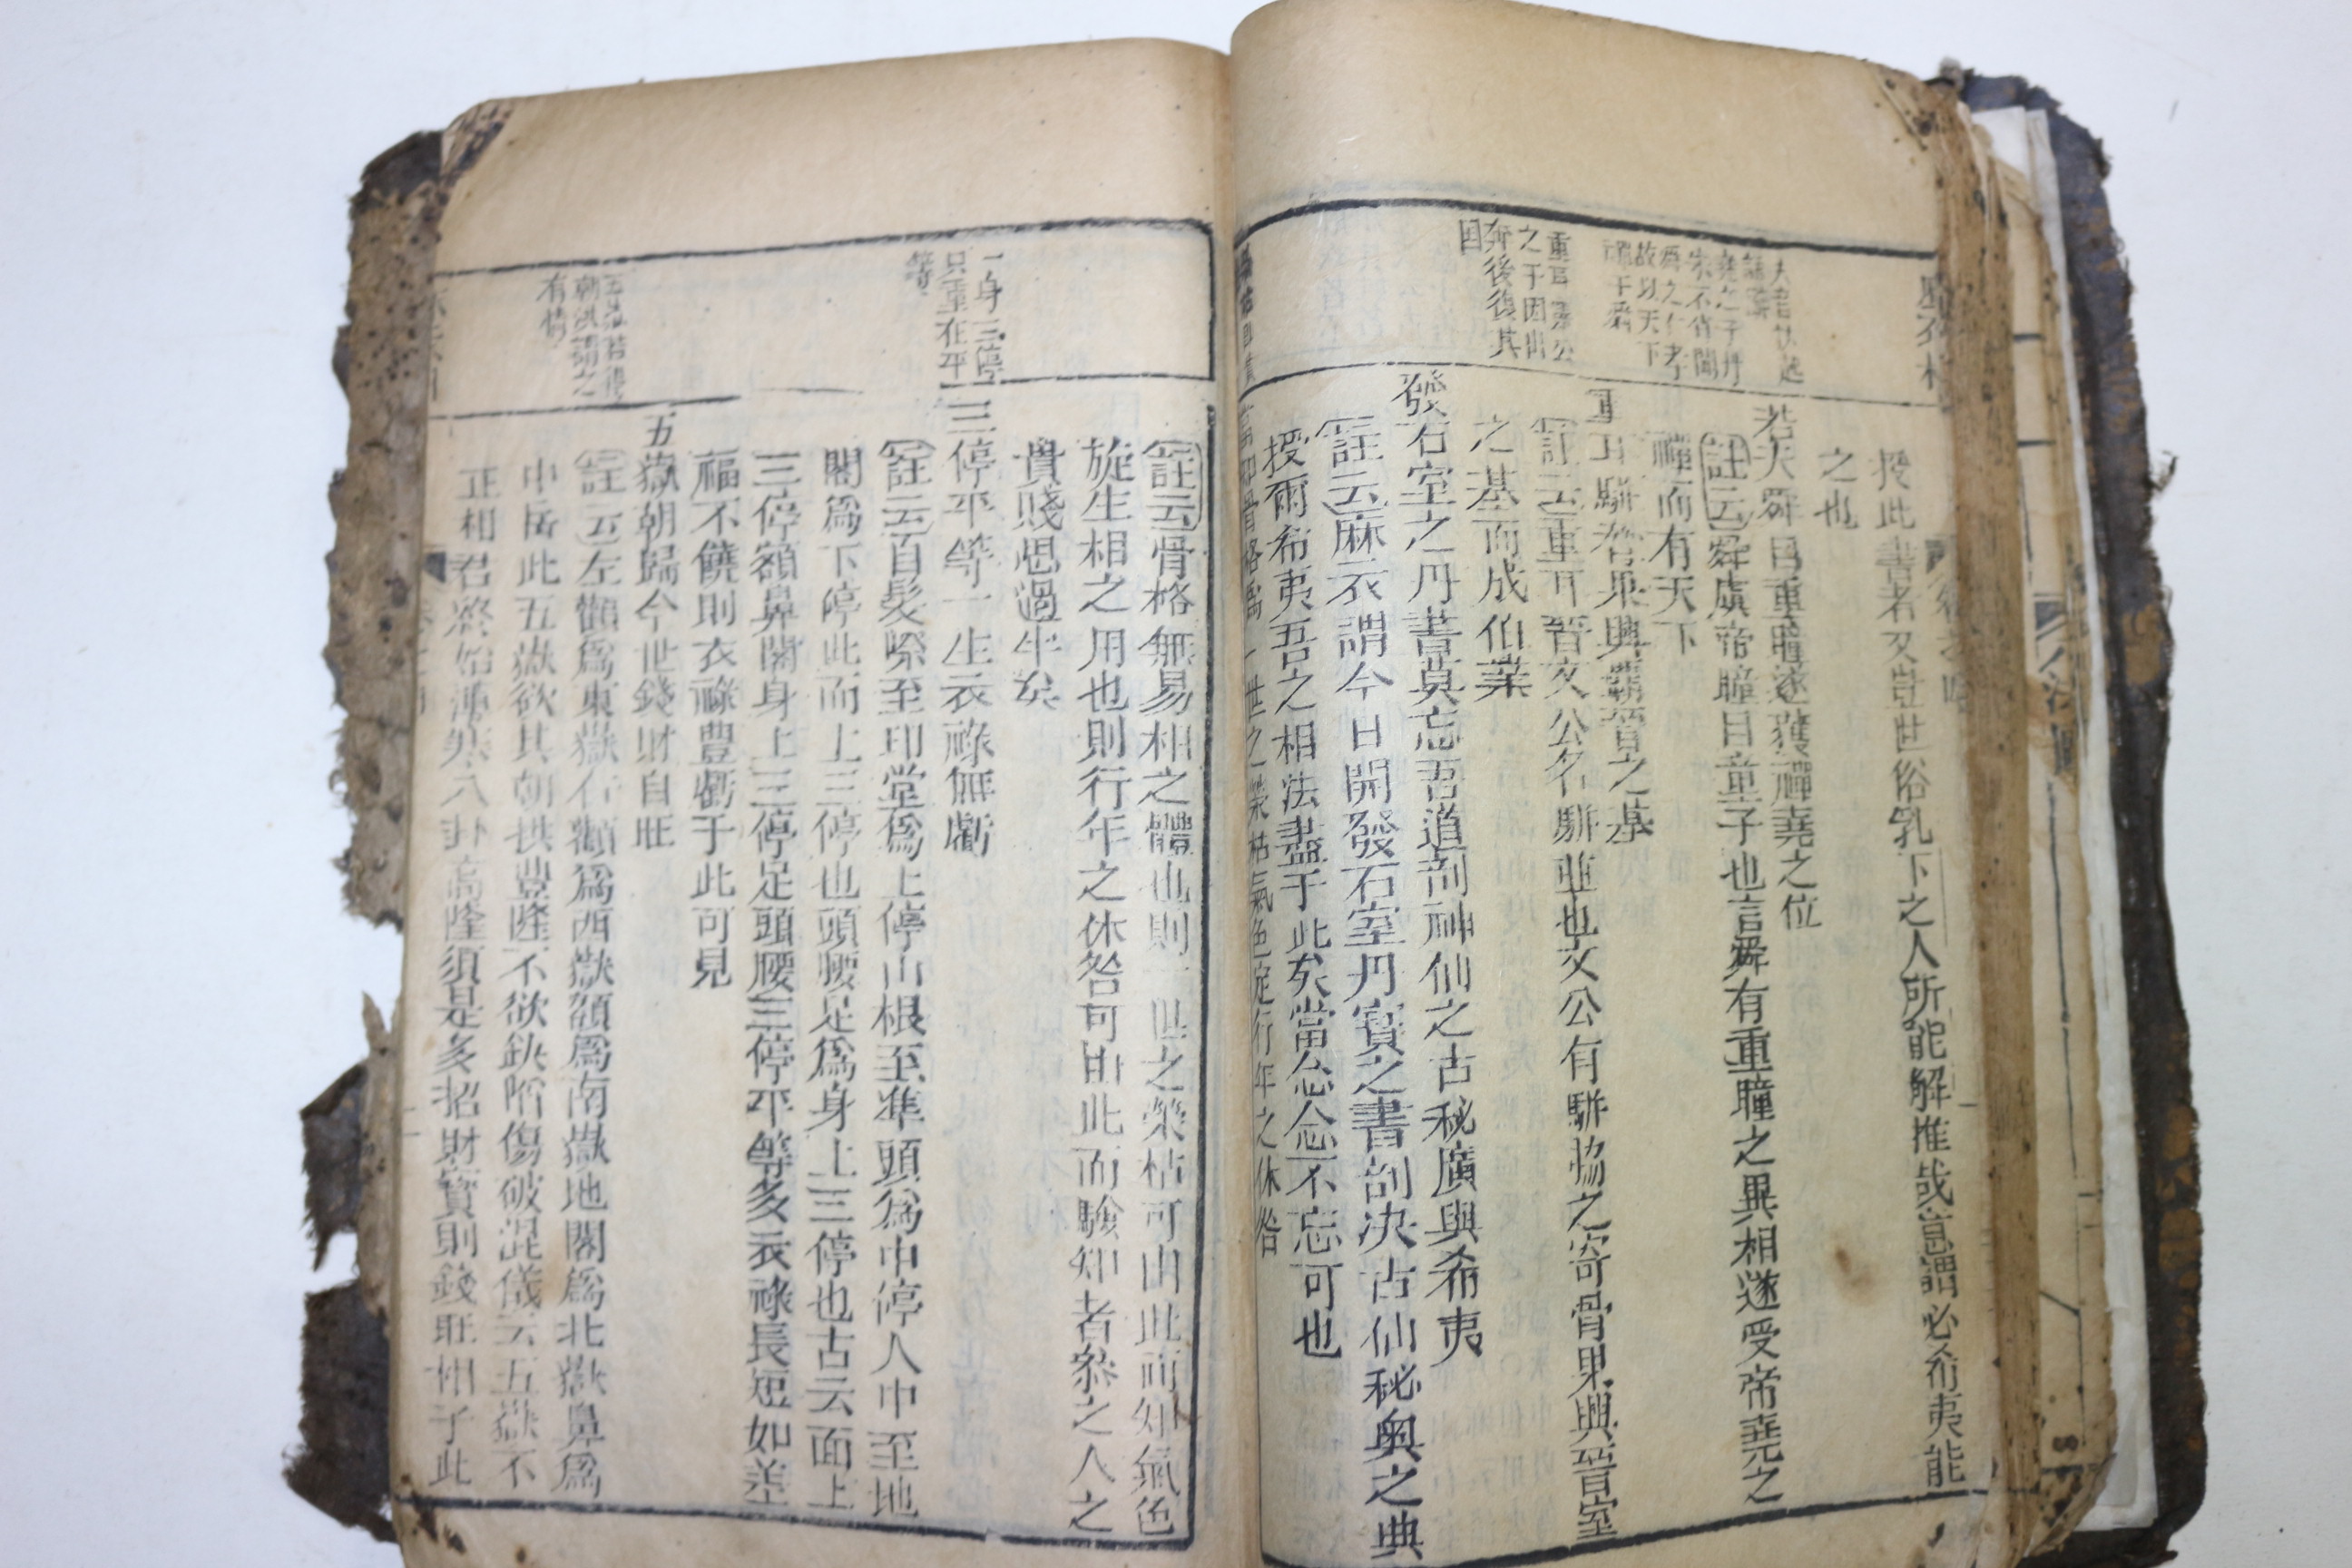 授此書者又豈世俗乳下之人所能解推哉豈謂必希夷能
之也
若大舜目重瞳遂獲禪堯之位
註云舜虞帝瞳目童子也言舜有重瞳之異相遂受帝堯之
禪而有天下
重耳駢脅果興霸晉之基
註云重耳晉文公名駢並也文公有駢脇之寄骨果興晉室
之基而成伯業
發石室之丹書莫忘吾道剖神仙之古秘廣與希夷
註云麻衣謂今日開發石室丹寶之書剖決古仙秘奧之典
授爾希夷吾之相法盡于此矣當念念不忘可也
骨格爲一世之榮枯氣色定行年之休咎
重耳 公
之子因出
奔後復其
國
堯之子丹
朱不肖聞
舜之仁孝
故以天下
禪于舜
註云骨格無易相之體也則一世之榮枯可由此而知氣色
旋生相之用也則行年之休咎可由此而驗知者叅之人之
貴賤思過半矣
三停平等一生衣祿無虧
註云自髮際至印堂爲上停山根至準頭爲中停人中至地
閣爲下停此面上三停也頭腰足爲身上三停也古云面上
三停額鼻閣身上三停足頭腰三停平等多衣祿長短如差
福不饒則衣祿豐虧于此可見
五嶽朝歸今世錢財自旺
註云左顴爲東嶽右顴爲西嶽額爲南嶽地閣爲北嶽鼻爲
中岳此五嶽欲其朝拱豐隆不欲缺陷傷破混儀云五嶽不
正相君終始薄寒八卦高隆須是多招財寶則錢旺相子此
一身三停
只重在平
等
朝拱謂之
有情